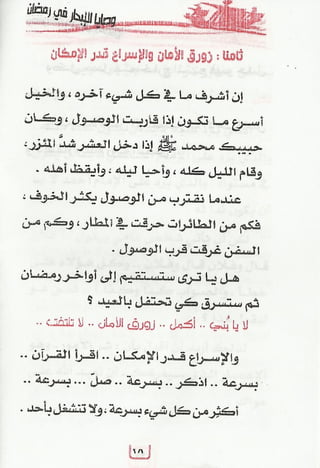 وصايا للإبحار في رمضان
ثامنا : زورق الأمان والإسراع قدر الإمكان
إن أشرف ما في كل شيء آخره ، والخيل
أسرع ما تكون إذا قاربت الوصول ، وكان
حبيبك محمد ﷺ إذا دخل العشر شدَّ المئزر ،
وقام الليل كله ، وأحيا ليله ، وأيقظ أهله .
عندما نقترب من الوصول يكثر الخوف ،
فكم من الطائرات حرقت في المطار ، وكم من
السفن غرقت قرب الوصول .
هل يا ترى ستستقيم إلى أواخر رمضان
ثم ستسرق كي تحتفل بالعيد ؟
لا يا بُني .. أكمل .. زورق الأمان .. لا تلتفت ..
والإسراع قدر الإمكان .. اقرأ القرآن ..
بسرعة .. اذكر .. بسرعة .. صلّ ... بسرعة ..
أكثر من كل شيء بسرعة ، ولا تنشغل بأحد .
٦٨